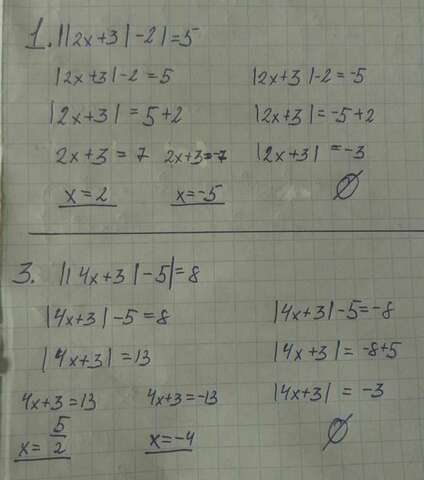 1. ||2x+3|-2|=5
|2x+3|-2=5 |2x+3|-2=-5
|2x+3|=5+2 |2x+3|=-5+2
2x+3=7 2x+3=-7 |2x+3|=-3
x=2 x=-5 ∅
3. ||4x+3|-5|=8
|4x+3|-5=8 |4x+3|-5=-8
|4x+3|=13 |4x+3|=-8+5
4x+3=13 4x+3=-13 |4x+3|=-3
x=5/2 x=-4 ∅